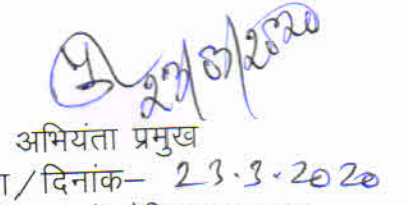 23/03/2020
अभियंता प्रमुख
/दिनांक– 23.3.2020